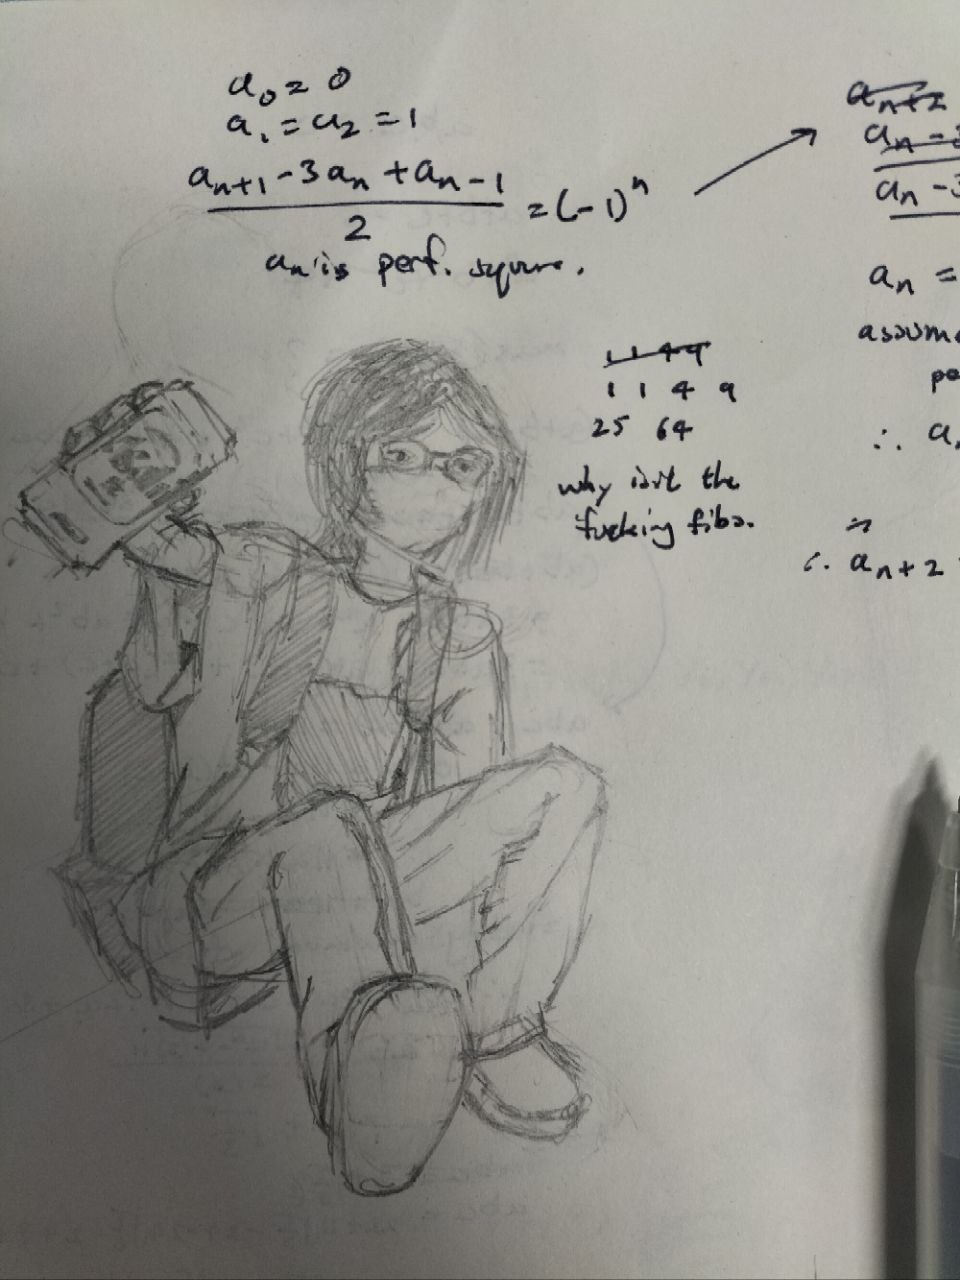 a₀ = 0
a₁ = a₂ = 1
(aₙ₊₁ - 3aₙ + aₙ₋₁)/2 = (-1)ⁿ
aₙ is perf. square.
1 1 4 9
1 1 4 9
25 64
why isit the
fucking fibo.
aₙ₊₂
aₙ - 3
aₙ - 3
aₙ =
assume
pe
∴ a
∴ aₙ₊₂